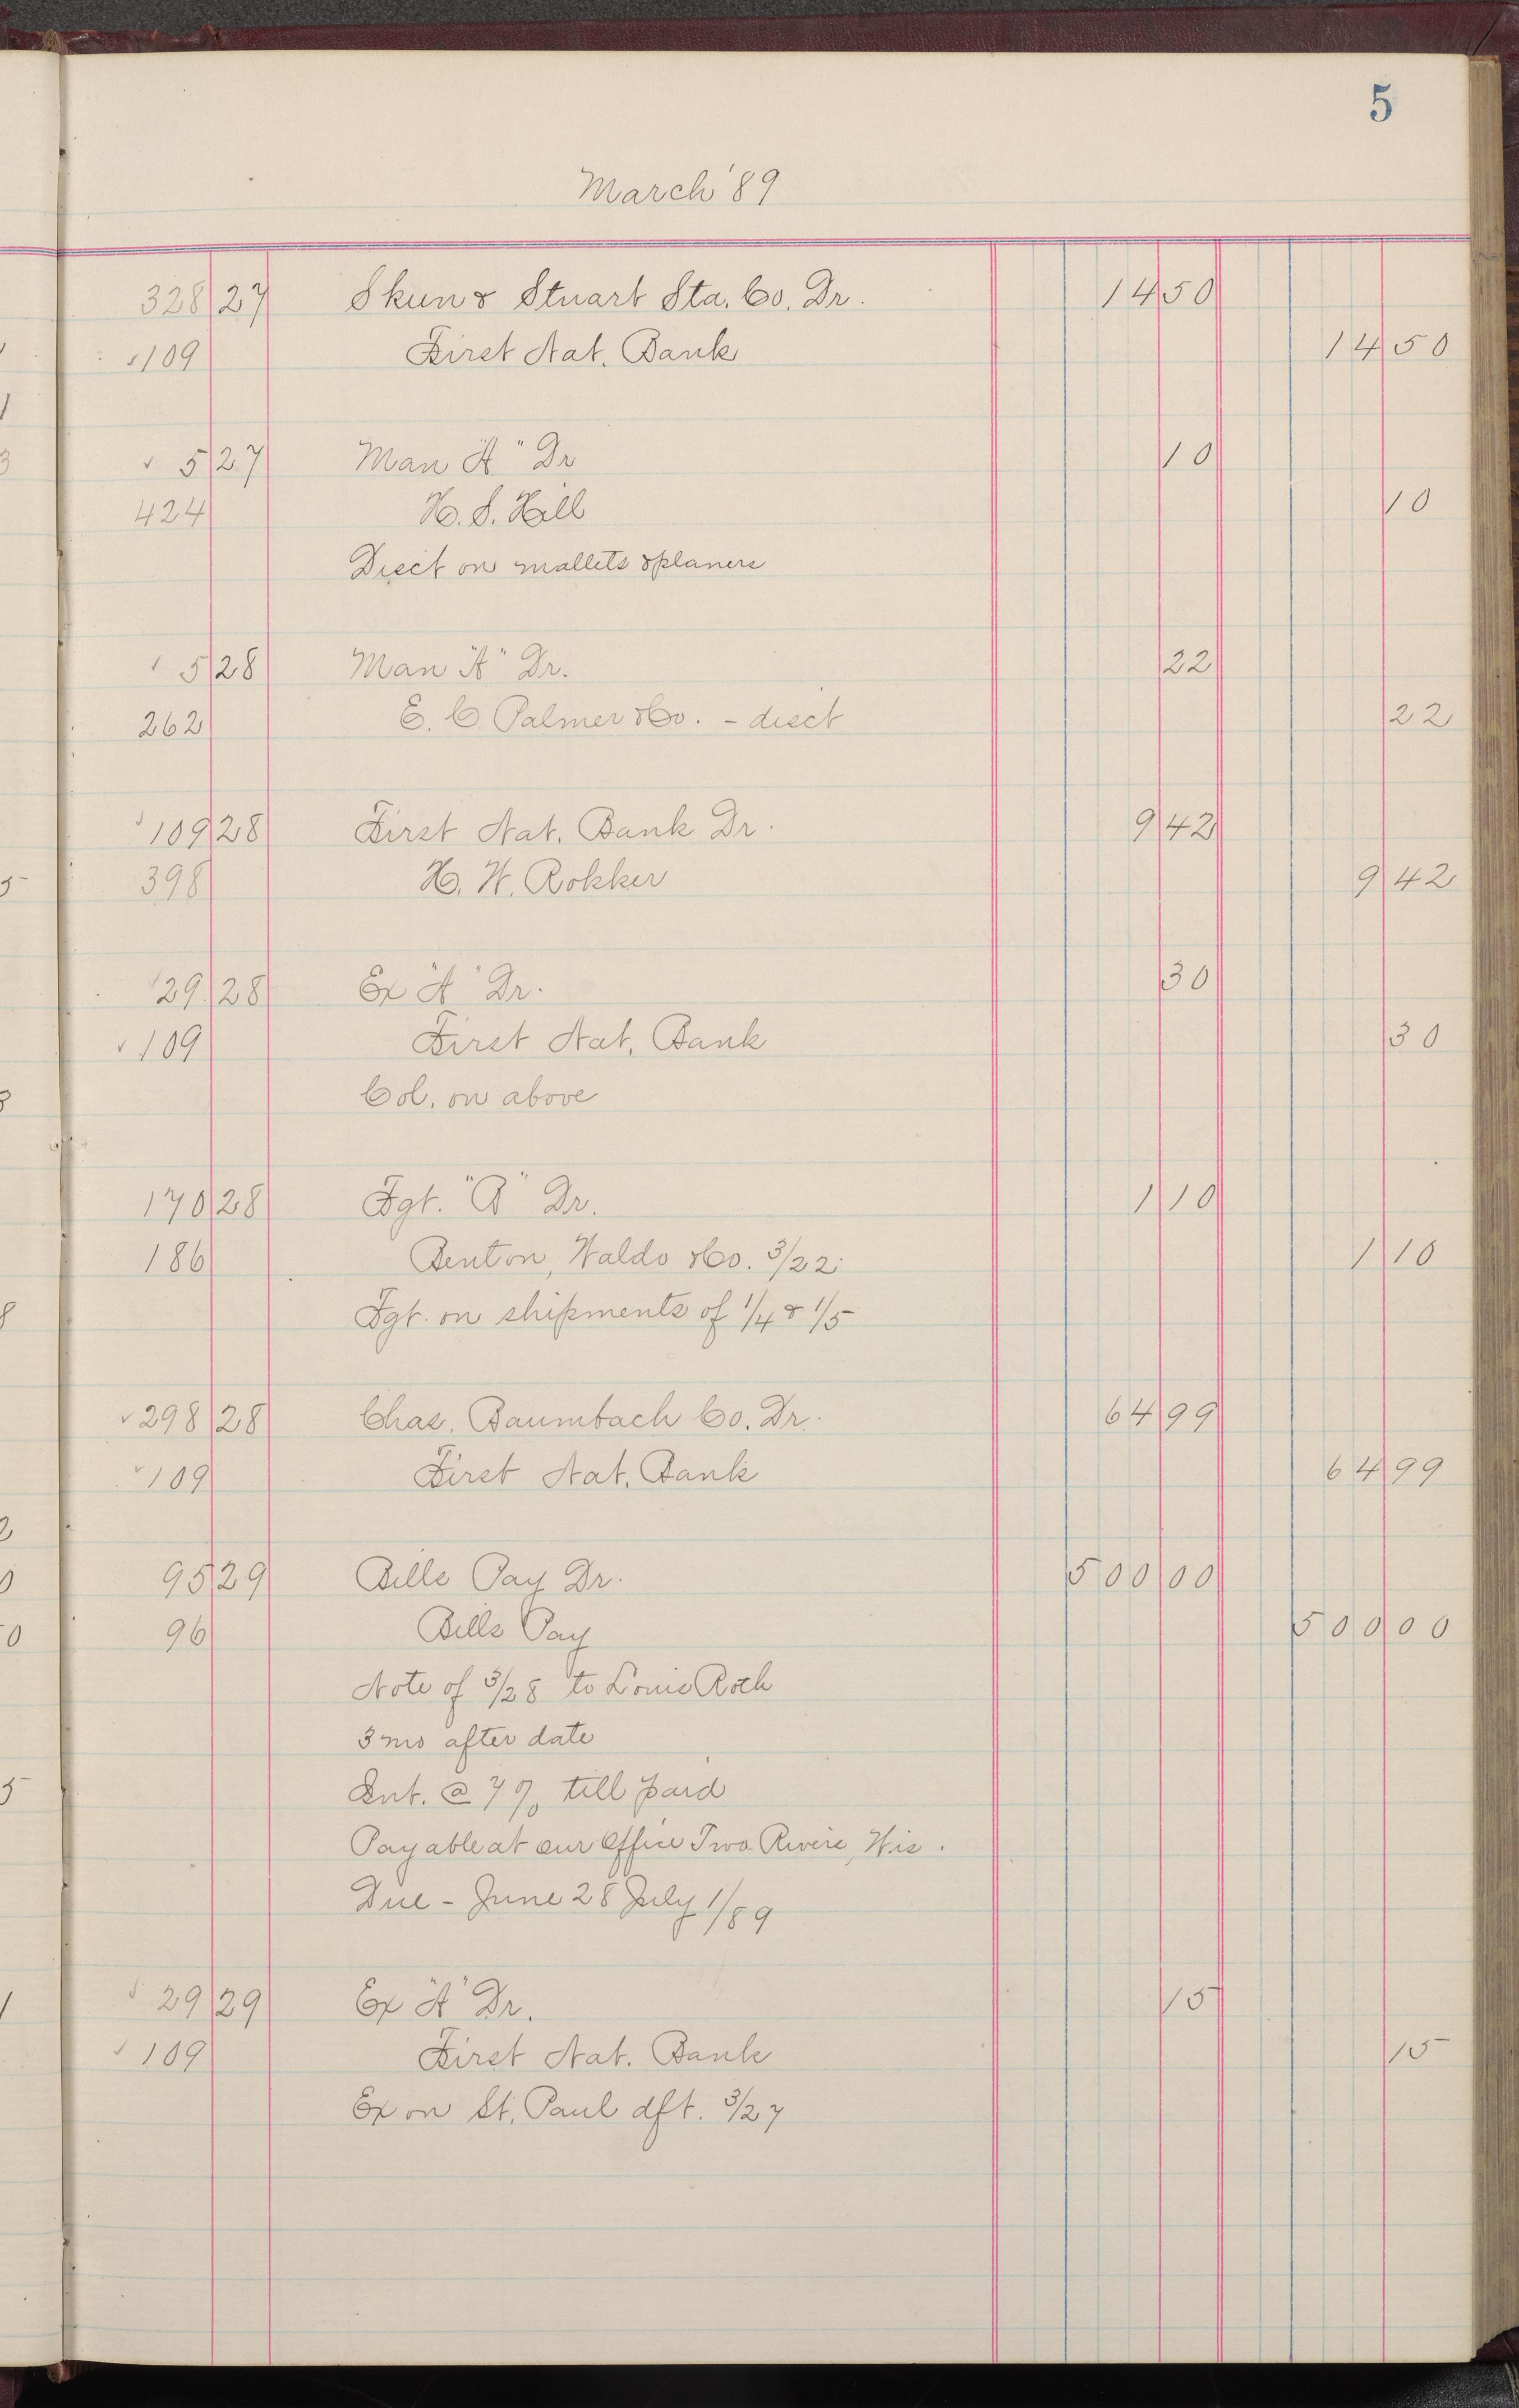 5
March '89
328 27 Skun & Stuart Sta. Co. Dr. 14 50
109 First Nat. Bank 14 50
5 27 Man "A" Dr 10
424 H. S. Hill 10
Disct on mallets & planers
5 28 Man "A" Dr. 22
262 E. C. Palmer & Co. - disct 22
109 28 First Nat. Bank Dr. 9 42
398 H. W. Rokker 9 42
29 28 Ex "A" Dr. 30
109 First Nat. Bank 30
Col. on above
170 28 Fgt. "A" Dr. 1 10
186 Benton, Waldo & Co. 3/22 1 10
Fgt. on shipments of 1/4 & 1/5
298 28 Chas. Baumbach Co. Dr. 64 99
109 First Nat. Bank 64 99
95 29 Bills Pay Dr. 500 00
96 Bills Pay 500 00
Note of 3/28 to Louis Roth
3 mo after date
Int. @ 7% till paid
Payable at our Office Two Rivers, Wis.
Due - June 28 July 1/89
29 29 Ex "A" Dr. 15
109 First Nat. Bank 15
Ex on St. Paul dft. 3/27